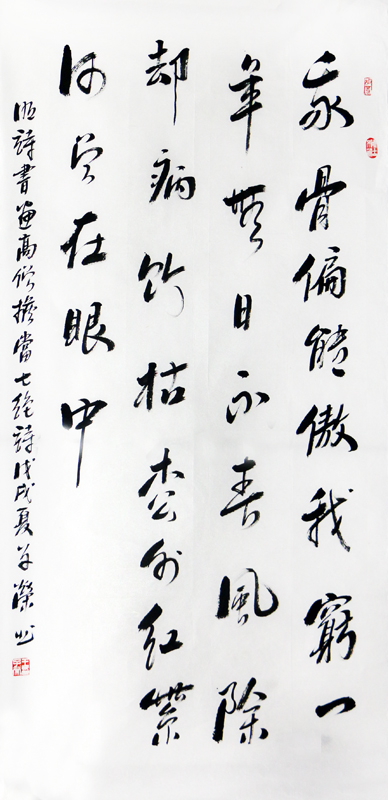 骨偏能傲我窮一
年無日不春風除
却病竹枯松外紅紫
何曾在眼中
明詩書畫高僧擔當七絕詩戊戌夏